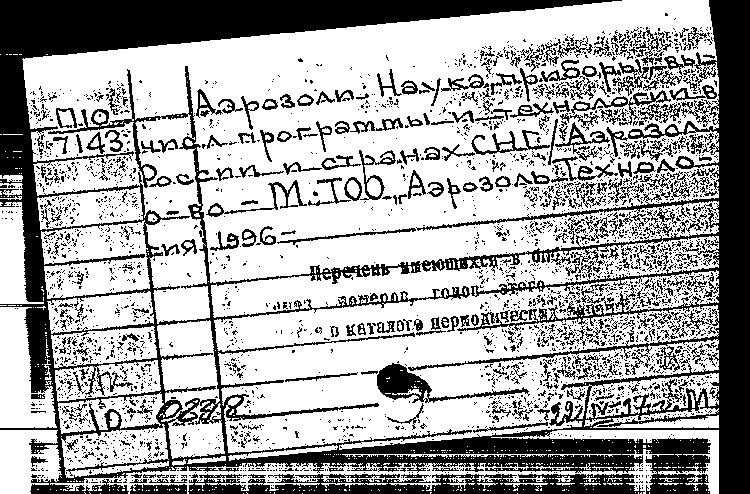 П10 Аэрозоли. Наука, приборы, вы-
7143 числ. программы и технологии в
России и странах СНГ/Аэрозол.
о-во - М.: ТОО „Аэрозоль Техноло-
гия", 1996-
Перечень имеющихся в
номеров, годов этого
в каталоге периодических
10 0248
22/IV-97г. М